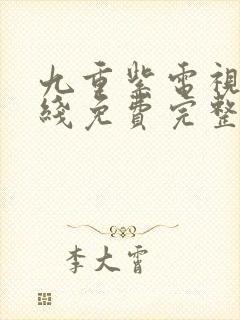 九重紫電視
綫免費完整
李大霄